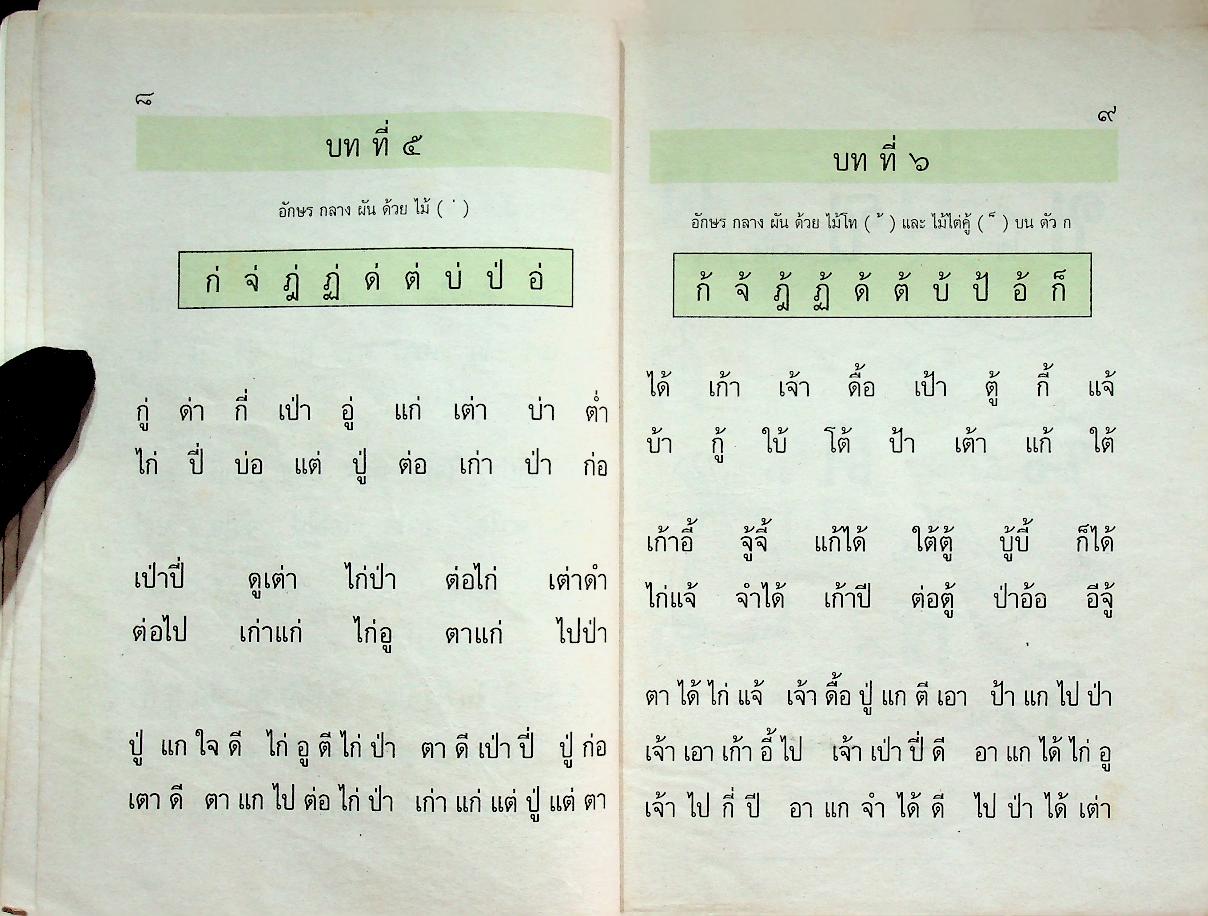 ๘
บท ที่ ๕
อักษร กลาง ผัน ด้วย ไม้ ( ่ )
ก่ จ่ ฎ่ ฏ่ ด่ ต่ บ่ ป่ อ่
กู่ ด่า กี่ เป่า อู่ แก่ เต่า บ่า ต่ำ
ไก่ ปี่ บ่อ แต่ ปู่ ต่อ เก่า ป่า ก่อ
เป่าปี่ ดูเต่า ไก่ป่า ต่อไก่ เต่าดำ
ต่อไป เก่าแก่ ไก่อู ตาแก่ ไปป่า
ปู่ แก ใจ ดี ไก่ อู ตี ไก่ ป่า ตา ดี เป่า ปี่ ปู่ ก่อ
เตา ดี ตา แก ไป ต่อ ไก่ ป่า เก่า แก่ แต่ ปู่ แต่ ตา
๙
บท ที่ ๖
อักษร กลาง ผัน ด้วย ไม้โท ( ้ ) และ ไม้ไต่คู้ ( ็ ) บน ตัว ก
ก้ จ้ ฎ้ ฏ้ ด้ ต้ บ้ ป้ อ้ ก็
ได้ เก้า เจ้า ดื้อ เป้า ตู้ กี้ แจ้
บ้า กู้ ใบ้ โต้ ป้า เต้า แก้ ใต้
เก้าอี้ จู้จี้ แก้ได้ ใต้ตู้ บู้บี้ ก็ได้
ไก่แจ้ จำได้ เก้าปี ต่อตู้ ป่าอ้อ อีจู้
ตา ได้ ไก่ แจ้ เจ้า ดื้อ ปู่ แก ตี เอา ป้า แก ไป ป่า
เจ้า เอา เก้า อี้ ไป เจ้า เป่า ปี่ ดี อา แก ได้ ไก่ อู
เจ้า ไป กี่ ปี อา แก จำ ได้ ดี ไป ป่า ได้ เต่า